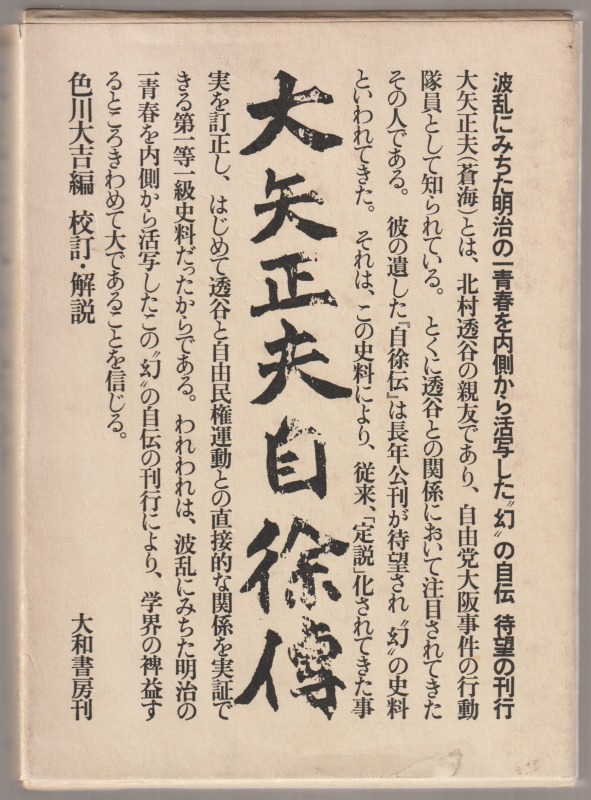 波乱にみちた明治の一青春を内側から活写した〝幻〟の自伝 待望の刊行
大矢正夫(蒼海)とは、北村透谷の親友であり、自由党大阪事件の行動
隊員として知られている。とくに透谷との関係において注目されてきた
その人である。彼の遺した『自徐伝』は長年公刊が待望され〝幻〟の史料
といわれてきた。それは、この史料により、従来、「定説」化されてきた事
大矢正夫自徐傳
実を訂正し、はじめて透谷と自由民権運動との直接的な関係を実証で
きる第一等一級史料だったからである。われわれは、波乱にみちた明治の
一青春を内側から活写したこの〝幻〟の自伝の刊行により、学界の裨益す
るところきわめて大であることを信じる。
色川大吉編 校訂・解説
大和書房刊